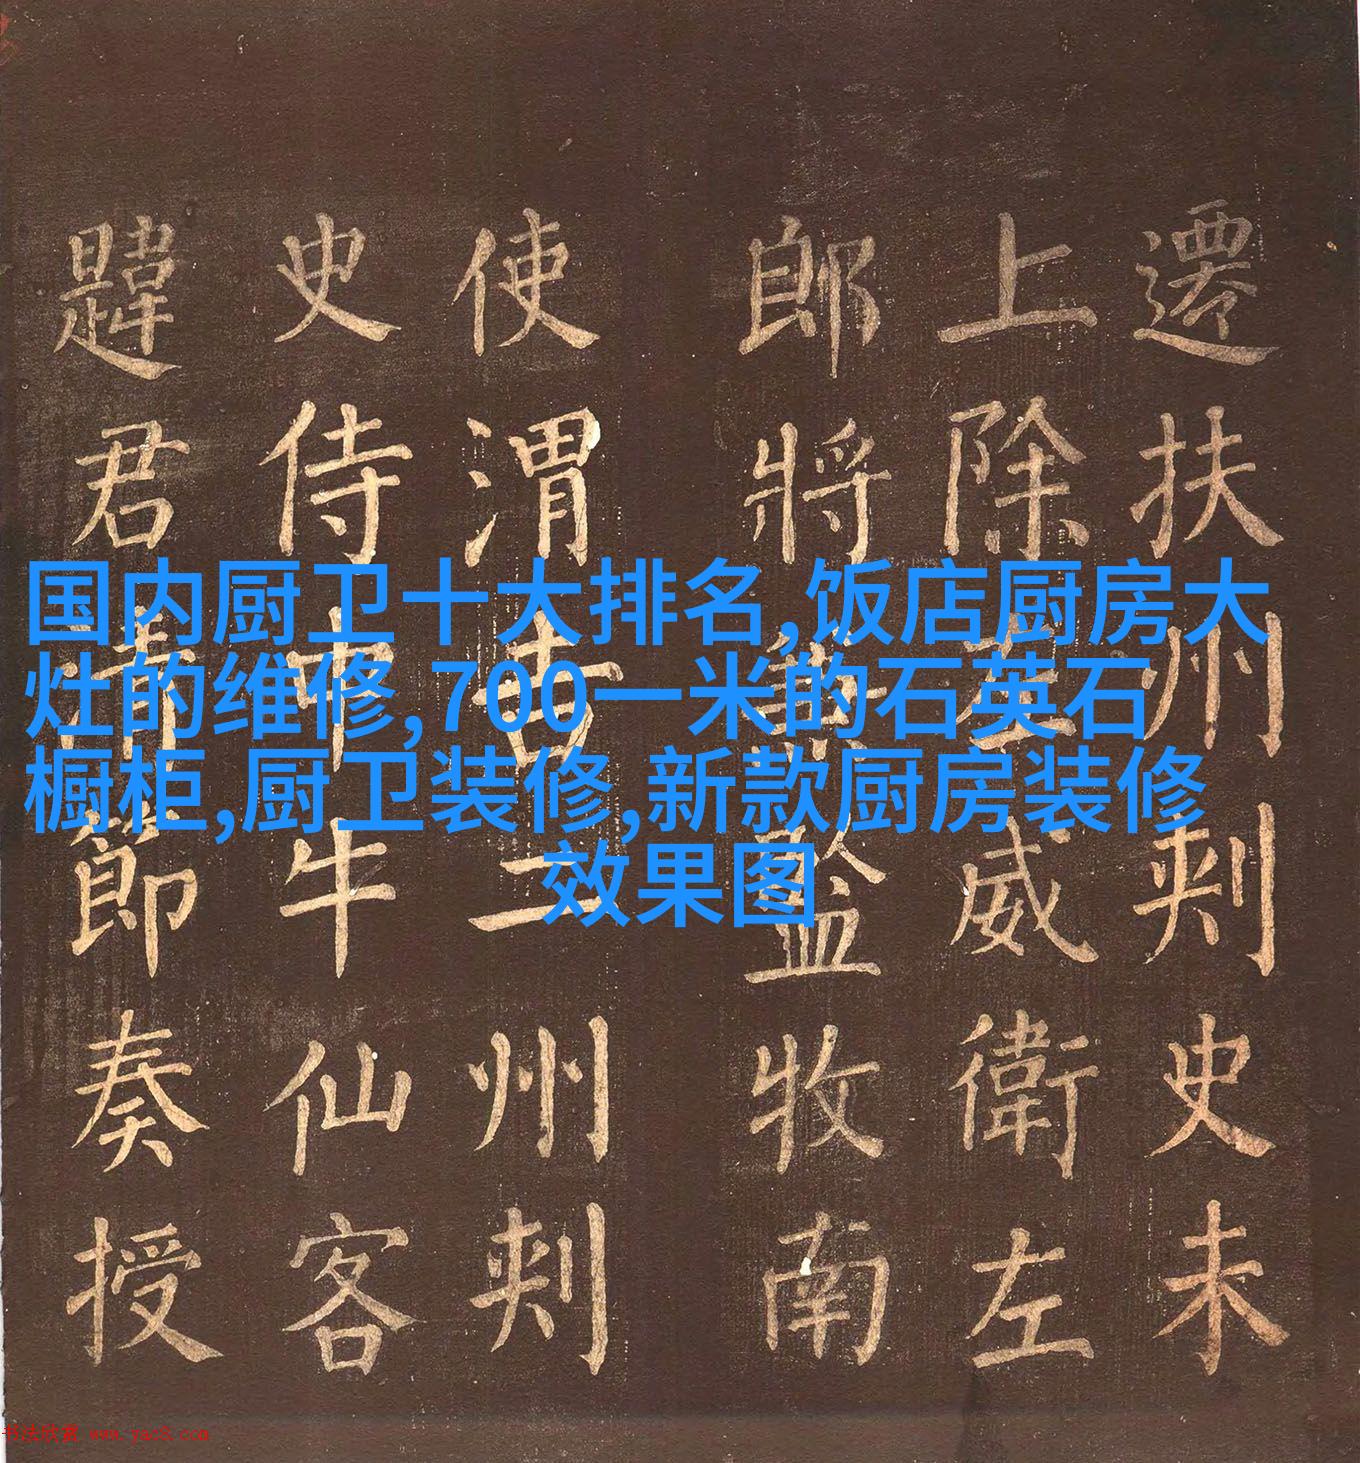 国内厨卫十大排名,饭店厨房大
灶的维修,700一米的石英石
橱柜,厨卫装修,新款厨房装修
效果图
遷扶州刾史未
上除左威衛左
郎將兼監牧南
使渭吉二州刾
史侍中牛仙客
韙君清節奏授
书法欣赏 www.yac8.com